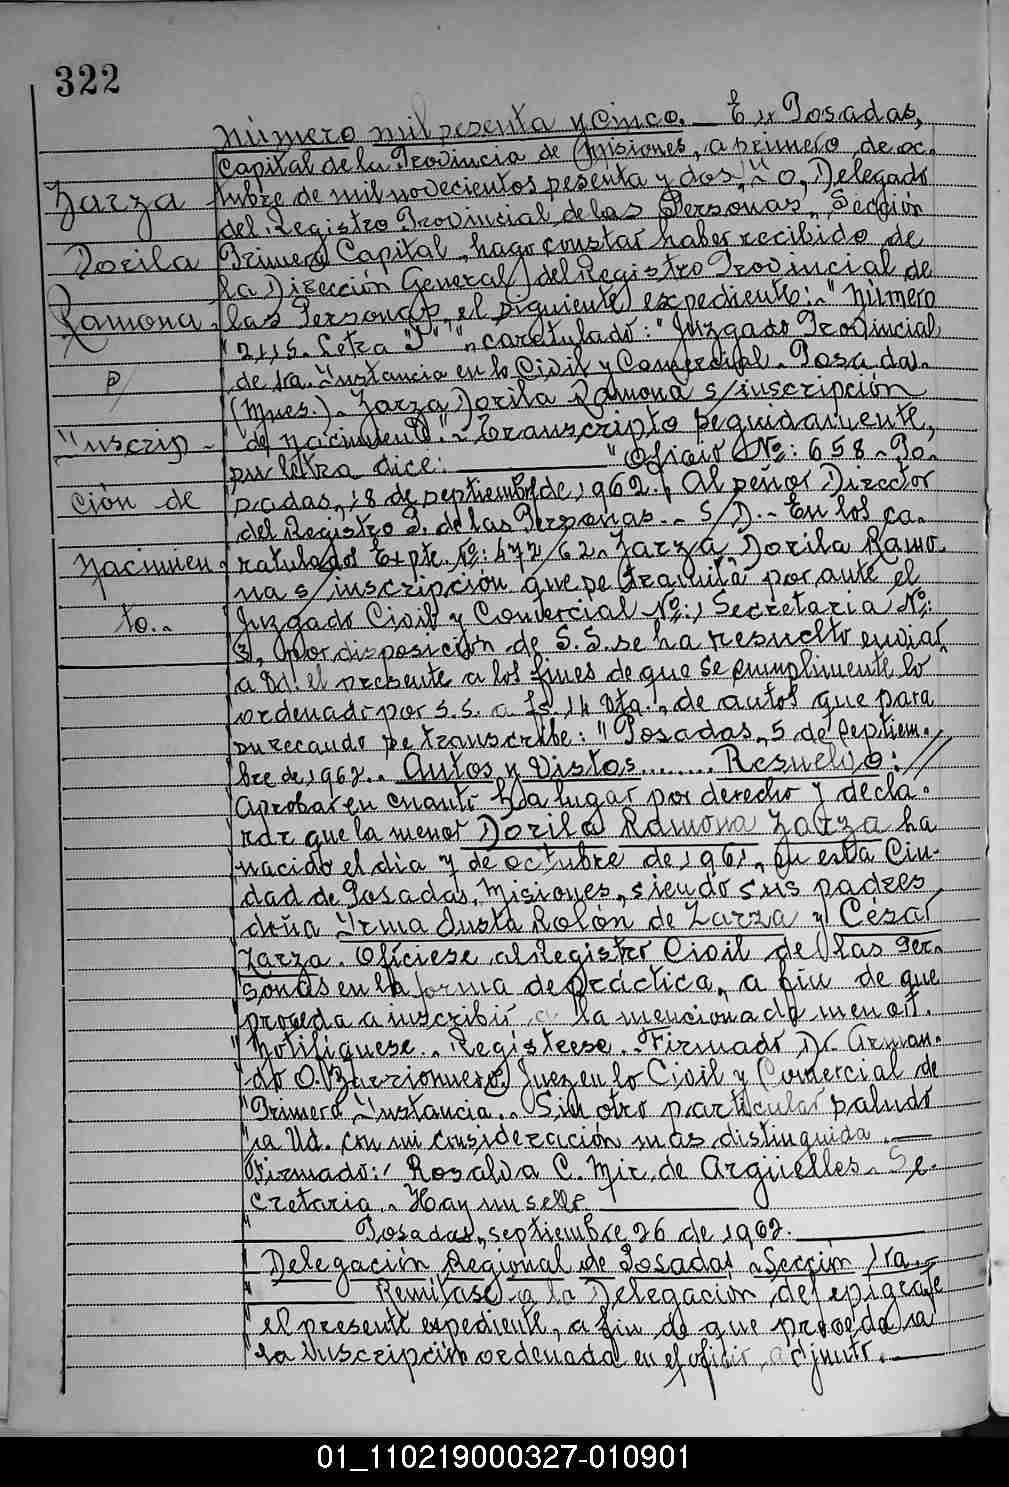 322
número mil sesenta y cinco. En Posadas,
Capital de la Provincia de Misiones, a primero de oc-
Zarza
tubre de mil novecientos sesenta y dos, Yo, Delegado
del Registro Provincial de las Personas, Sección
Dorila
Primera Capital, hago constar haber recibido de
la Dirección General del Registro Provincial de
Ramona.
las Personas, el siguiente expediente: "Número
"2115. Letra "J"", caratulado: "Juzgado Provincial
de 1ra. Instancia en lo Civil y Comercial. Posadas.
P/
(Mnes.). Zarza Dorila Ramona s/inscripción
Inscrip-
"de nacimiento". Transcripto seguidamente,
su letra dice: "Oficio Nº: 658. Po-
ción de
sadas, 18 de septiembre de 1962. Al señor Director
del Registro P. de las Personas. S/D. En los ca-
Nacimien-
ratulados Expte. Nº: 472/62. Zarza Dorila Ramo-
na s/inscripción que se tramita por ante el
to..
Juzgado Civil y Comercial Nº: 1, Secretaria Nº:
por disposición de S.S. se ha resuelto enviar
a Ud. el presente a los fines de que se cumplimente lo
ordenado por S.S. a fs. 14 vta., de autos que para
su recaudo se transcribe: "Posadas, 5 de septiem-
bre de 1962.. Autos y Vistos........ Resuelvo: //
Aprobar en cuanto ha lugar por derecho y decla-
rar que la menor Dorila Ramona Zarza ha
nacido el día 7 de octubre de 1961, en esta Ciu-
dad de Posadas, Misiones, siendo sus padres
doña Irma Justa Rolón de Zarza y César
Zarza. Ofíciese al Registro Civil de las Per-
sonas en la forma de práctica, a fin de que
proceda a inscribir a la mencionada menor.
"Notifíquese.. Regístrese.. Firmado Dr. Arman-
do O. Barrionuevo, Juez en lo Civil y Comercial de
"Primera Instancia.. Sin otro particular saludo
"a Ud. con mi consideración más distinguida.
Firmado: Rosalva C. Mir. de Argüelles. Se-
cretaria. Hay un sello.
" Posadas, septiembre 26 de 1962.
Delegación Regional de Posadas Sección 1ra.
Remítase a la Delegación del epígrafe
"el presente expediente, a fin de que proceda a
"la inscripción ordenada en el oficio adjunto.
01_110219000327-010901